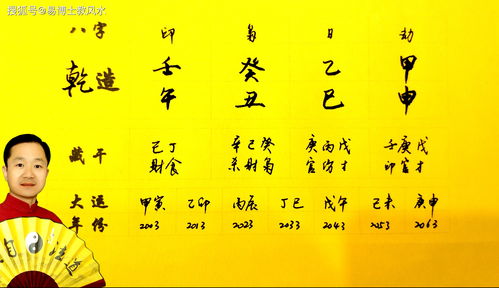 搜狐号@易博士教风水
八字 印 枭 日 劫
乾造 壬 癸 乙 甲
午 丑 巳 申
藏干 己丁 辛己癸 庚丙戊 壬庚戊
财食 杀财枭 官伤才 印官才
大运 甲寅 乙卯 丙辰 丁巳 戊午 己未 庚申
年份 2003 2013 2023 2033 2043 2053 2063
自法道